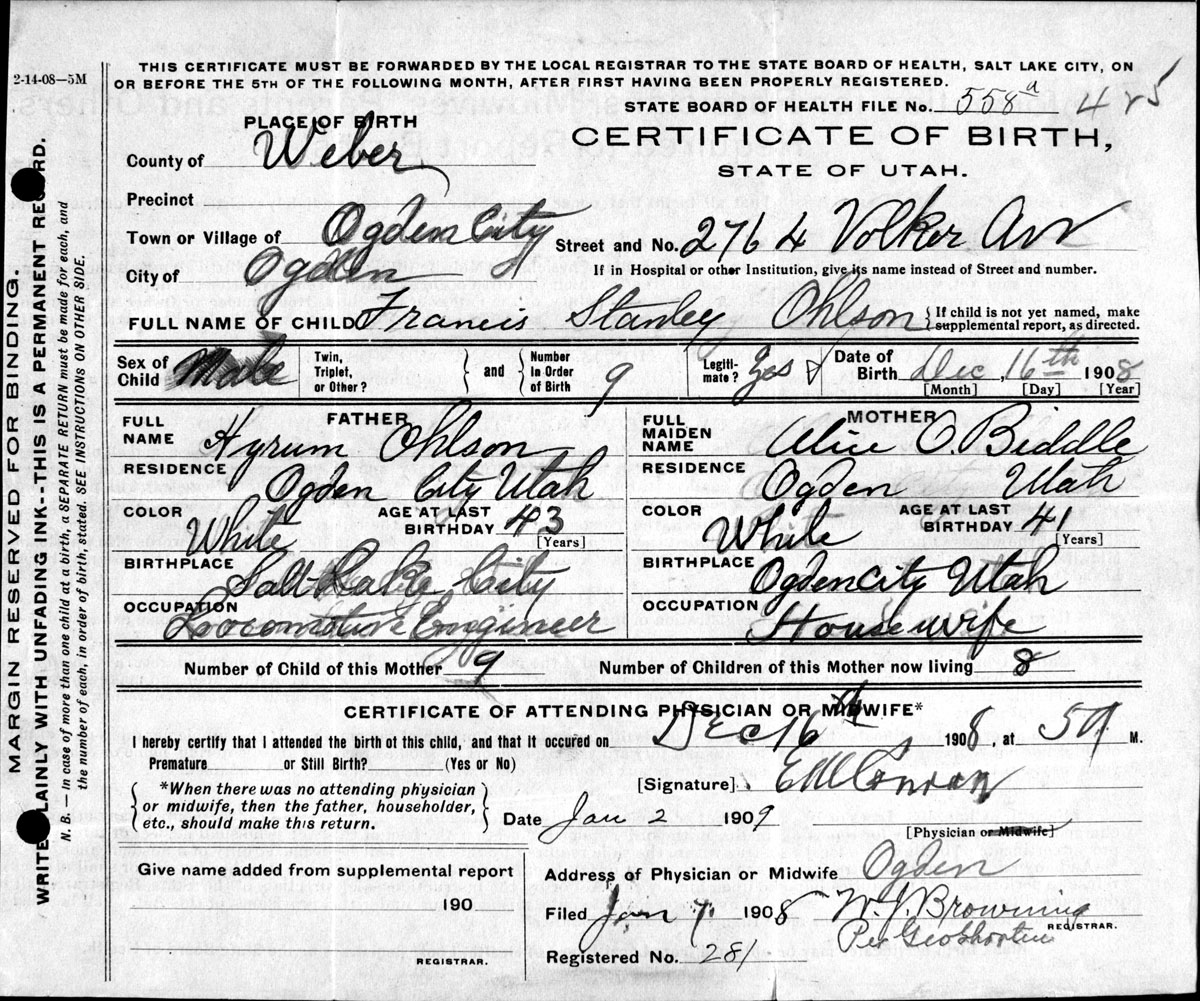 2-14-08—5M
THIS CERTIFICATE MUST BE FORWARDED BY THE LOCAL REGISTRAR TO THE STATE BOARD OF HEALTH, SALT LAKE CITY, ON
OR BEFORE THE 5TH OF THE FOLLOWING MONTH, AFTER FIRST HAVING BEEN PROPERLY REGISTERED.
STATE BOARD OF HEALTH FILE No. 558a 425
PLACE OF BIRTH
CERTIFICATE OF BIRTH,
County of Weber
STATE OF UTAH.
Precinct
Town or Village of Ogden City
Street and No. 2764 Volker Av
City of Ogden
If in Hospital or other Institution, give its name instead of Street and number.
FULL NAME OF CHILD Francis Stanley Ohlson { If child is not yet named, make supplemental report, as directed.
Sex of Child Male Twin, Triplet, or Other? { } and { Number In Order of Birth 9 Legiti-mate? Yes Date of Birth Dec 16th 1908
[Month] [Day] [Year]
FATHER
FULL NAME Hyrum Ohlson
RESIDENCE Ogden City Utah
COLOR White AGE AT LAST BIRTHDAY 43 [Years]
BIRTHPLACE Salt Lake City
OCCUPATION Locomotive Engineer
MOTHER
FULL MAIDEN NAME Alice O. Biddle
RESIDENCE Ogden Utah
COLOR White AGE AT LAST BIRTHDAY 41 [Years]
BIRTHPLACE Ogden City Utah
OCCUPATION Housewife
Number of Child of this Mother 9 Number of Children of this Mother now living 8
CERTIFICATE OF ATTENDING PHYSICIAN OR MIDWIFE*
I hereby certify that I attended the birth of this child, and that it occured on Dec 16th 1908, at 5 M.
Premature or Still Birth? (Yes or No)
[Signature]
*When there was no attending physician
or midwife, then the father, householder,
etc., should make this return.
Date Jan 2 1909
[Physician or Midwife]
Give name added from supplemental report
190
REGISTRAR.
Address of Physician or Midwife Ogden
Filed Jan 7 1908 W. J. Browning
REGISTRAR.
Per Geo Shorten
Registered No. 281
MARGIN RESERVED FOR BINDING.
WRITE PLAINLY WITH UNFADING INK--THIS IS A PERMANENT RECORD.
N. B. — In case of more than one child at a birth, a SEPARATE RETURN must be made for each, and
the number of each, in order of birth, stated. SEE INSTRUCTIONS ON OTHER SIDE.